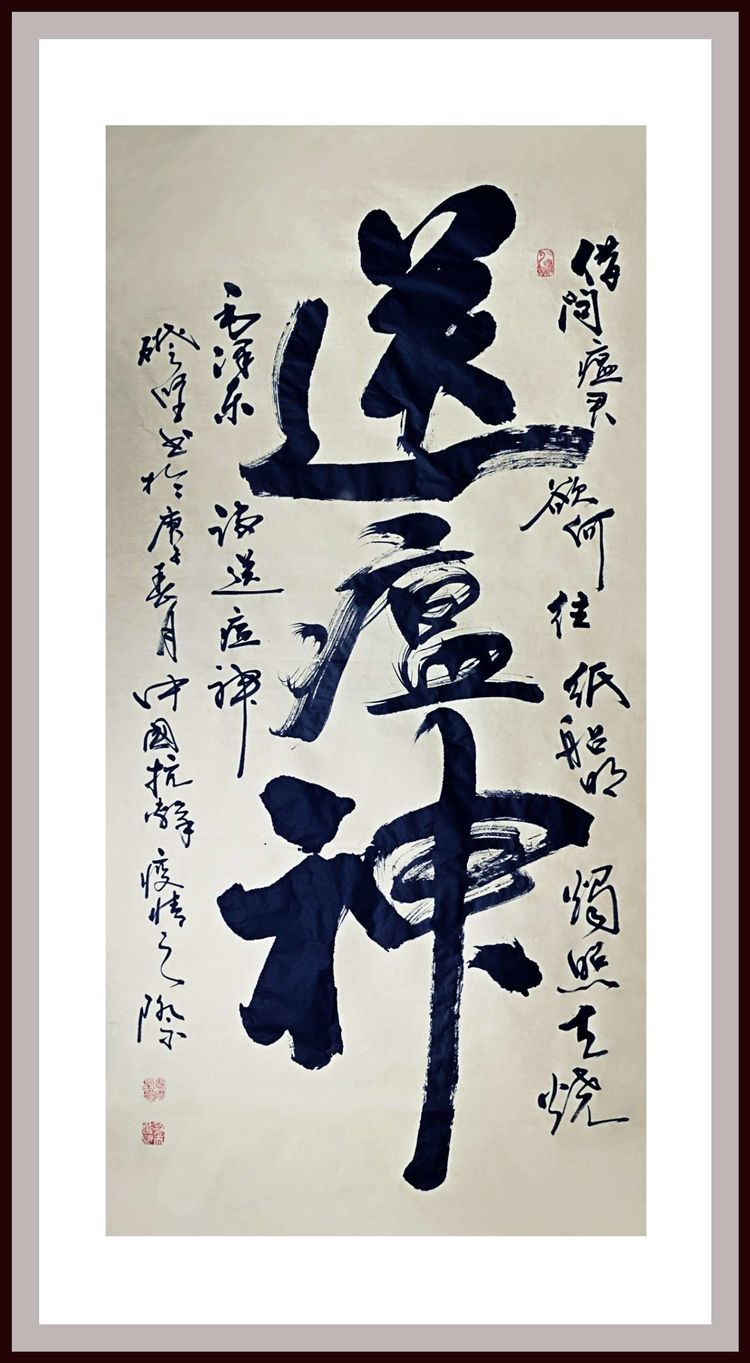 借问瘟君欲何往纸船明燭照天烧
送瘟神
毛泽东诗送瘟神
书於庚子春月中國抗擊疫情之際